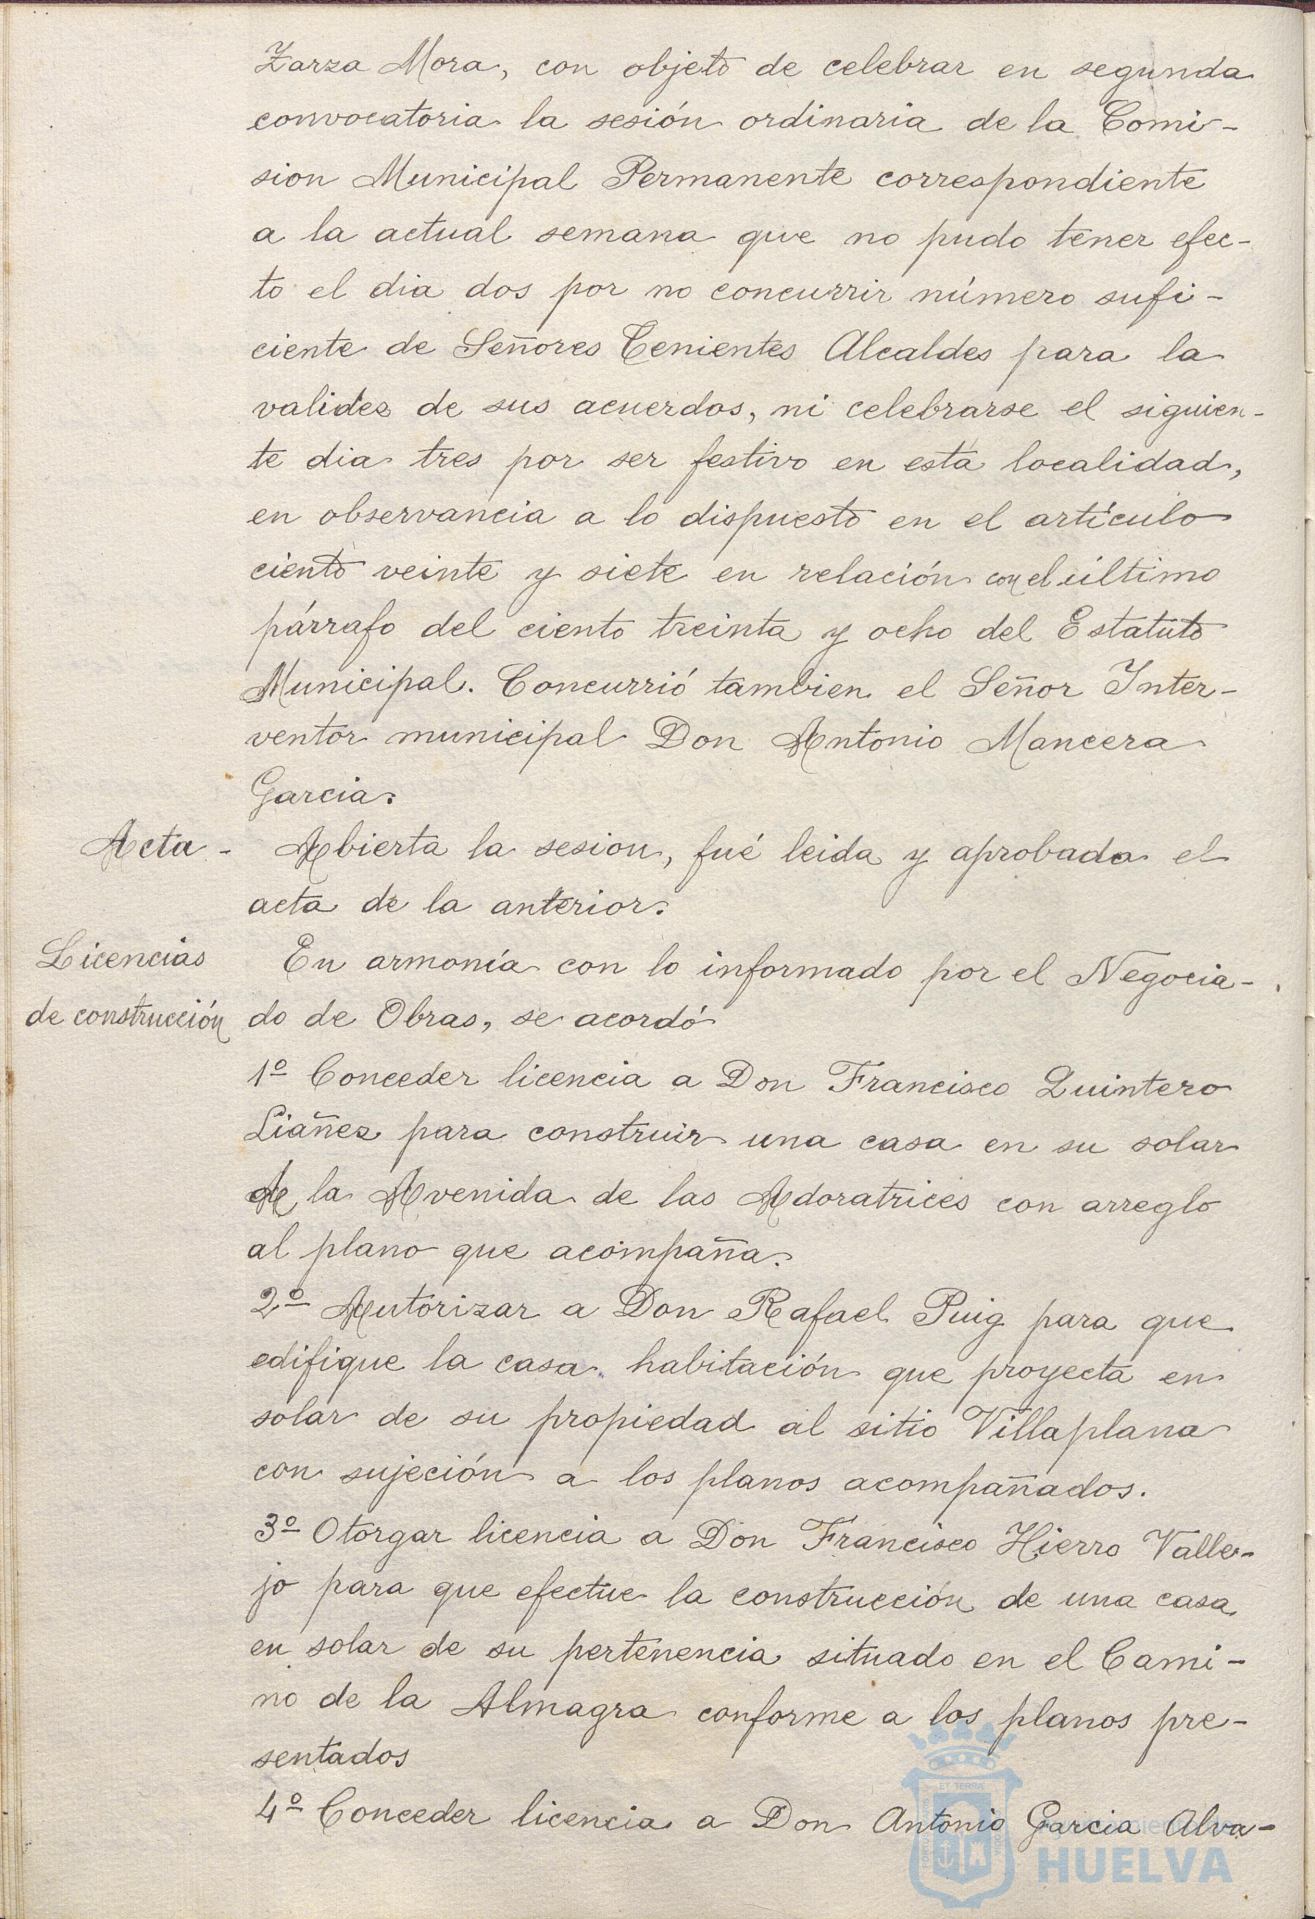 Zarza Mora, con objeto de celebrar en segunda
convocatoria la sesión ordinaria de la Comi-
sion Municipal Permanente correspondiente
a la actual semana que no pudo tener efec-
to el dia dos por no concurrir número sufi-
ciente de Señores Tenientes Alcaldes para la
validez de sus acuerdos, ni celebrarse el siguien-
te dia tres por ser festivo en esta localidad,
en observancia a lo dispuesto en el artículo
ciento veinte y siete en relación con el último
párrafo del ciento treinta y ocho del Estatuto
Municipal. Concurrió tambien el Señor Inter-
ventor municipal Don Antonio Mancera
Garcia.
Acta - Abierta la sesion, fué leida y aprobada el
acta de la anterior.
Licencias En armonía con lo informado por el Negocia-
de construcción do de Obras, se acordó
1º Conceder licencia a Don Francisco Quintero
Liañez para construir una casa en su solar
de la Avenida de las Adoratrices con arreglo
al plano que acompaña.
2º Autorizar a Don Rafael Puig para que
edifique la casa habitación que proyecta en
solar de su propiedad al sitio Villaplana
con sujeción a los planos acompañados.
3º Otorgar licencia a Don Francisco Hierro Valle-
jo para que efectue la construcción de una casa
en solar de su pertenencia situado en el Cami-
no de la Almagra conforme a los planos pre-
sentados
4º Conceder licencia a Don Antonio Garcia Alva-
HUELVA